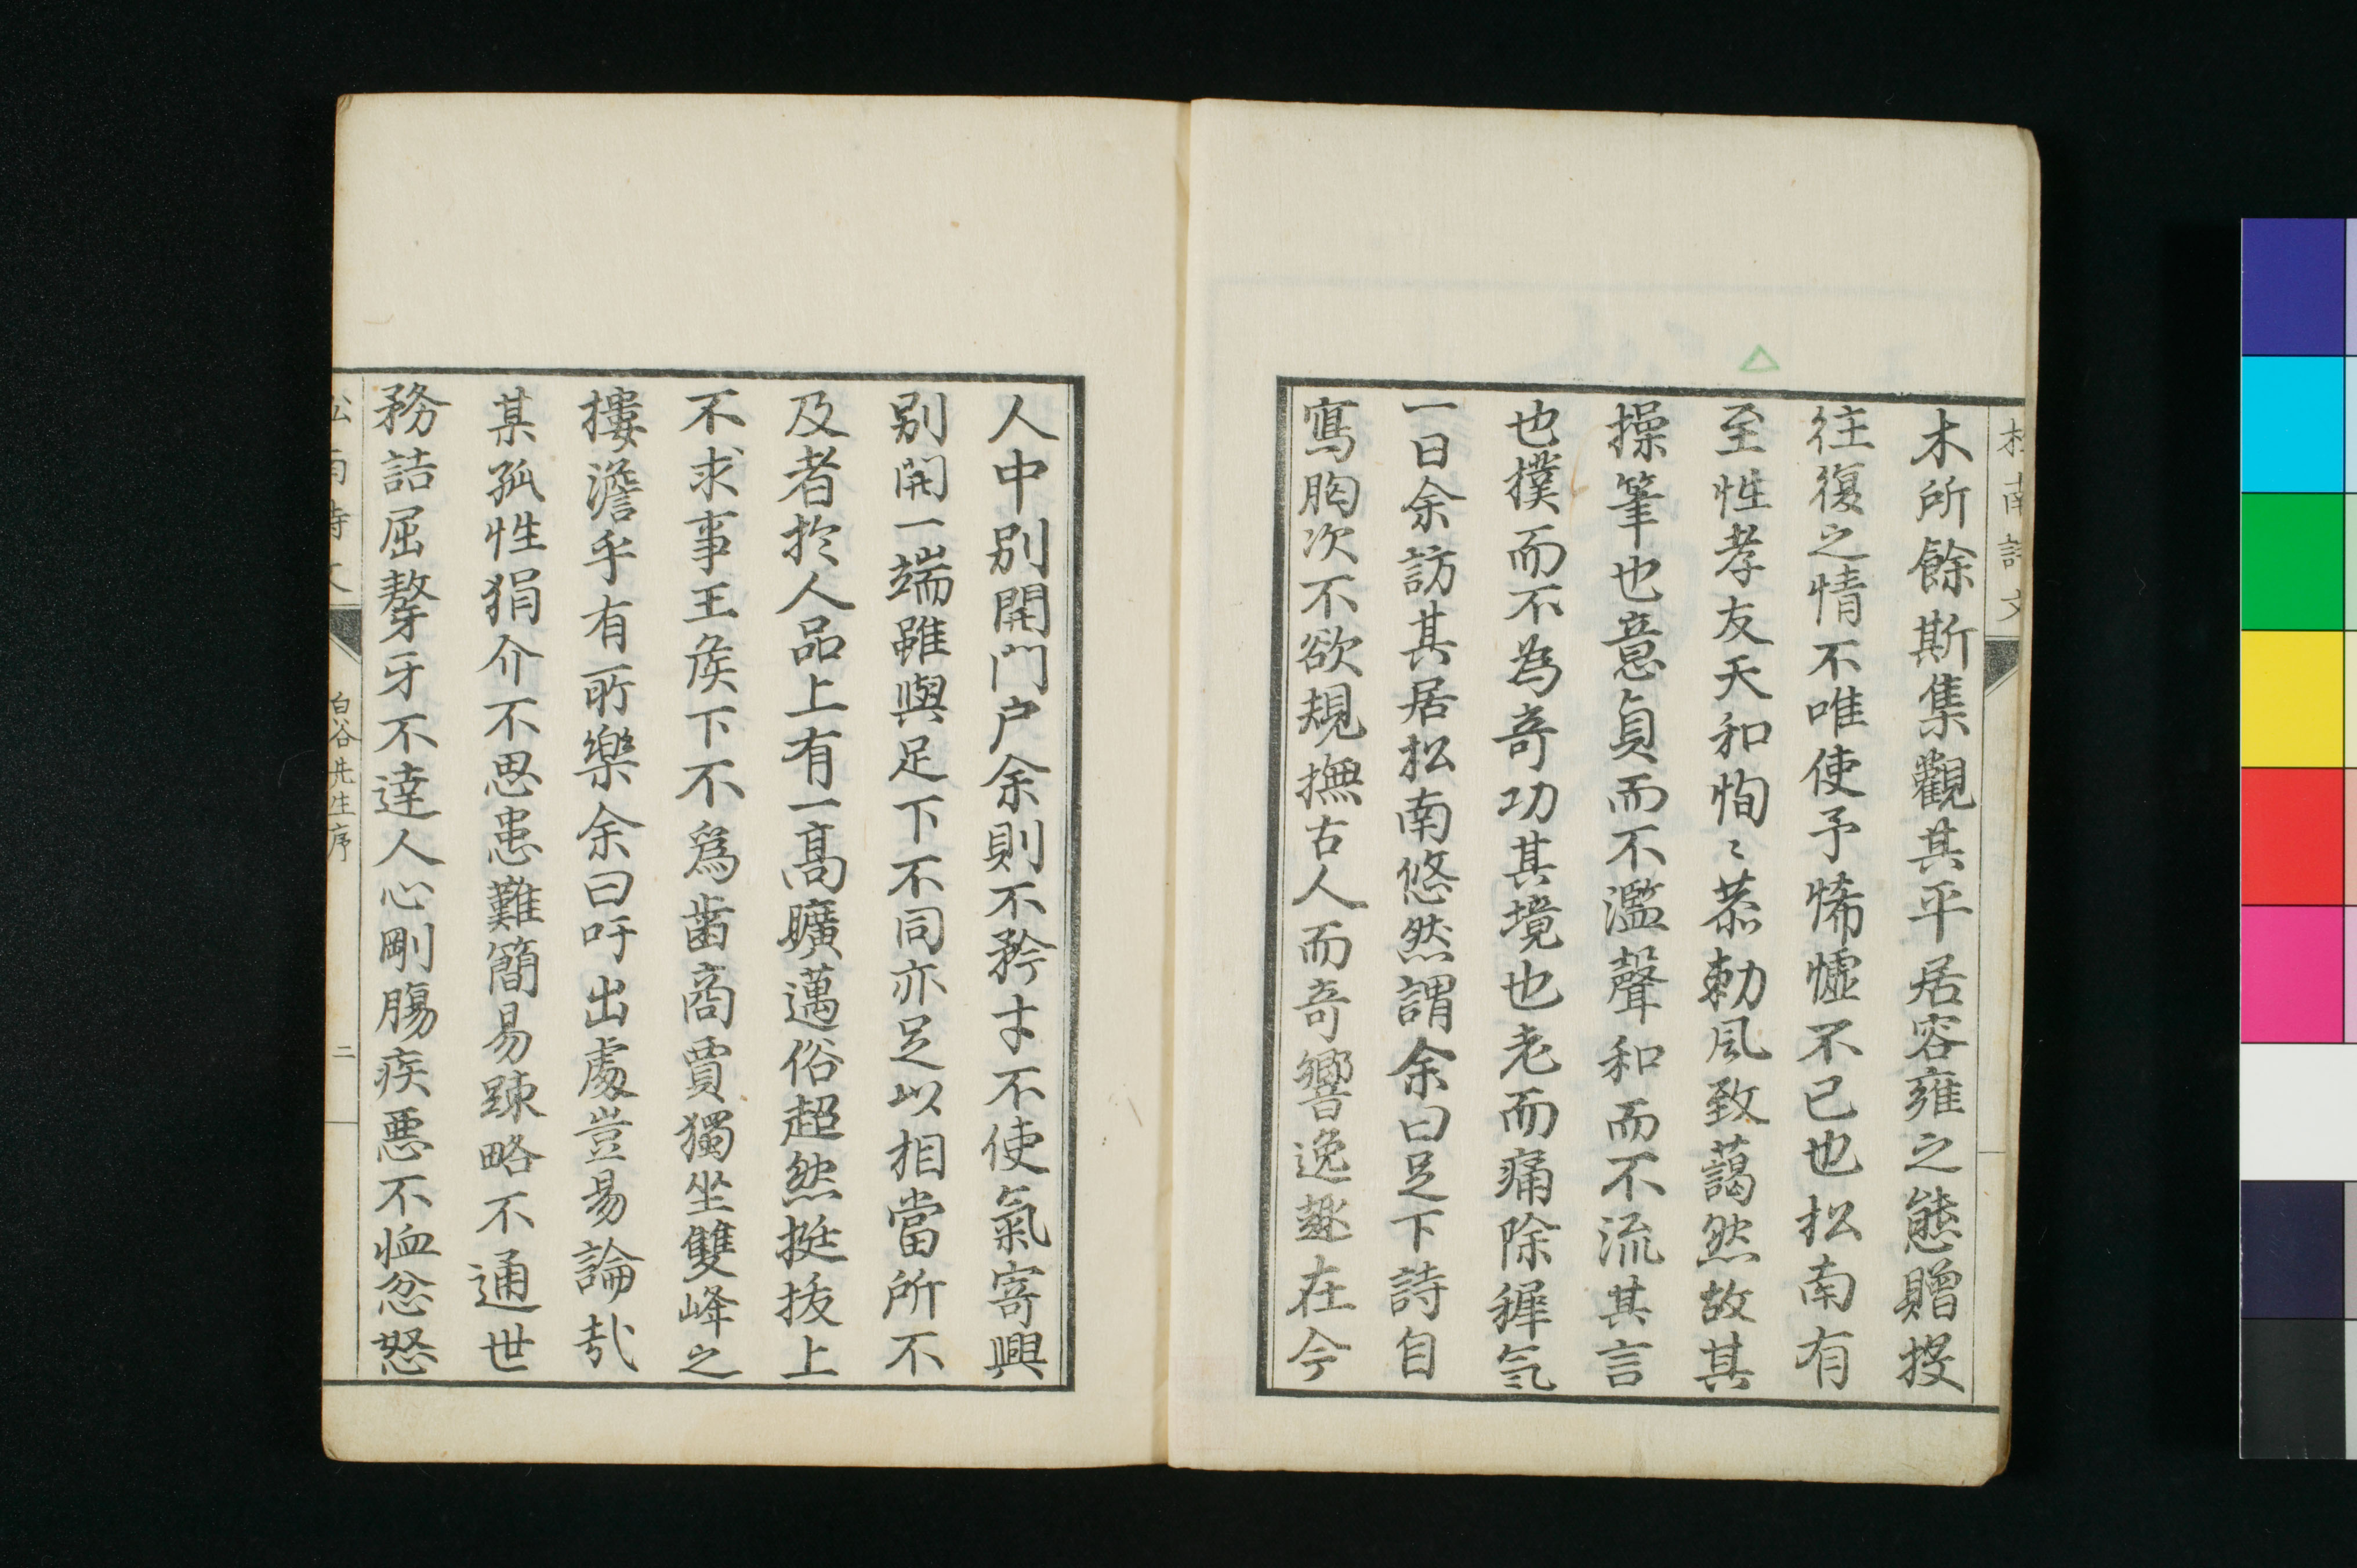 松南詩文
木所餘斯集觀其平居容雍之態贈投
往復之情不唯使予悕憈不已也松南有
至性孝友天和恂〻恭勅風致藹然故其
操筆也意貞而不濫聲和而不流其言
也撲而不為奇功其境也老而痛除穉氣
一日余訪其居松南悠然謂余曰足下詩自
寫胸次不欲規撫古人而奇響逸趣在今
人中別開門户余則不矜才不使氣寄興
別開一端雖與足下不同亦足以相當所不
及者於人品上有一髙曠邁俗超然挺拔上
不求事王矦下不爲齒商賈獨坐雙峰之
摟澹乎有所樂余曰吁出處豈易論哉
某孤性狷介不思患難簡易踈略不通世
務詰屈聱牙不達人心剛膓疾悪不恤忿怒
松南詩文
白谷先生序
二